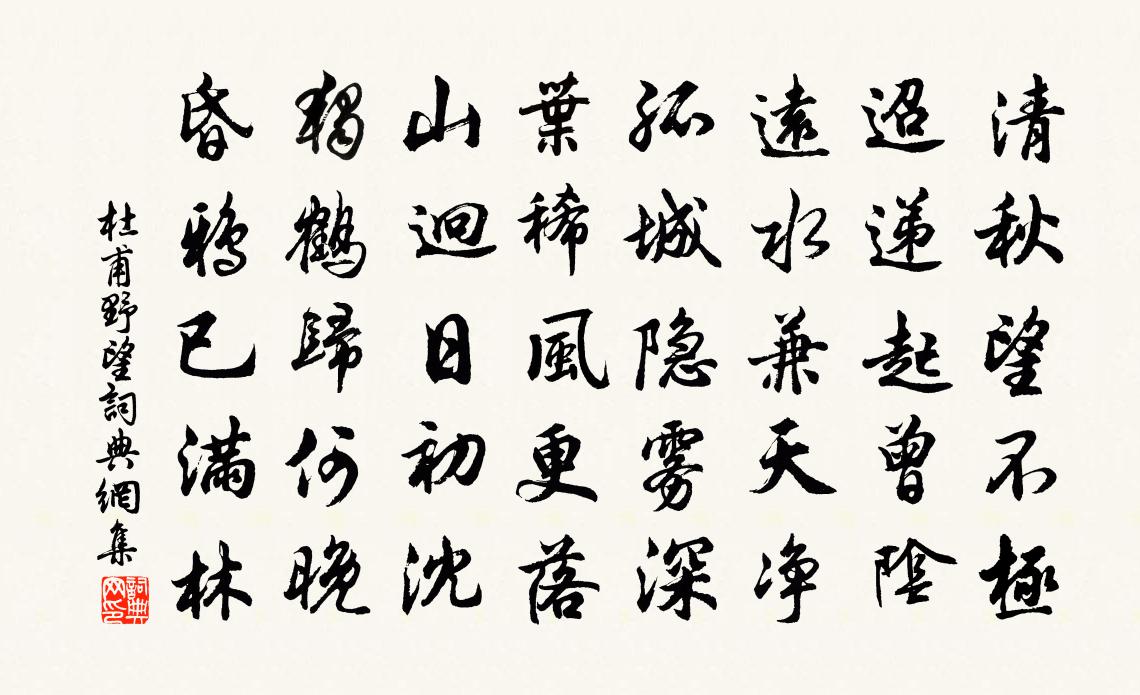 清秋望不極
迢递起曾陰
遠水兼天净
孤城隐雾深
葉稀風更落
山迥日初沈
獨鶴歸何晚
昏鴉已滿林
杜甫野望詞典網集
詞典网印